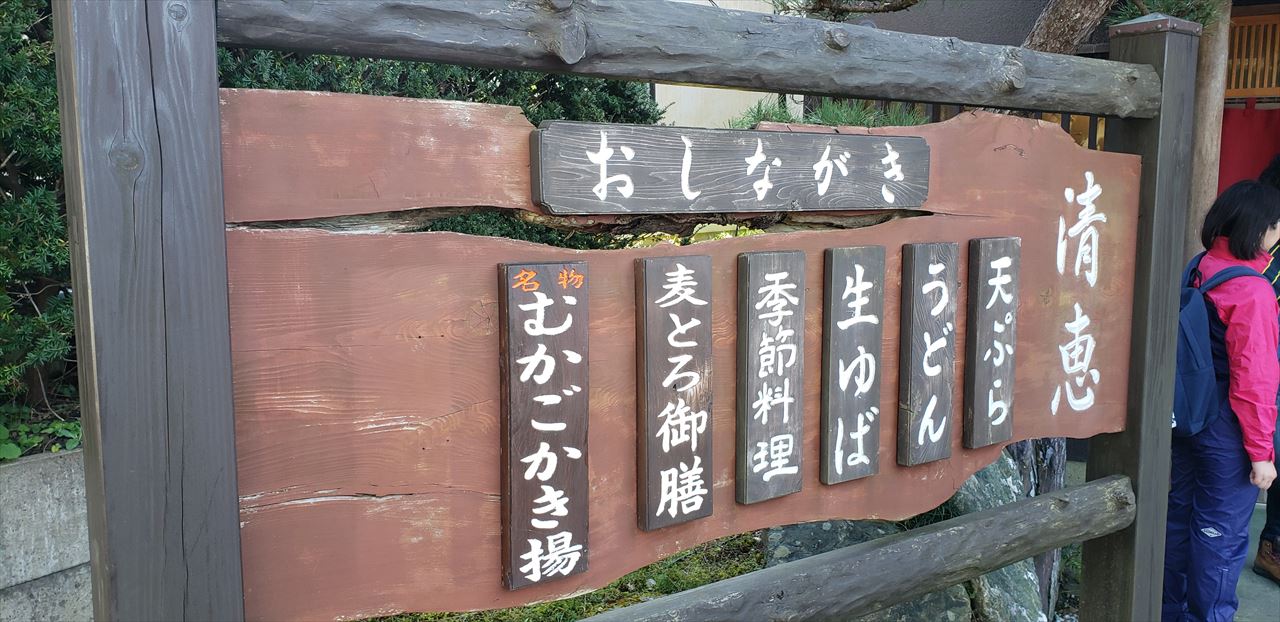 おしながき
清恵
天ぷら
うどん
生ゆば
季節料理
麦とろ御膳
名物
むかごかき揚